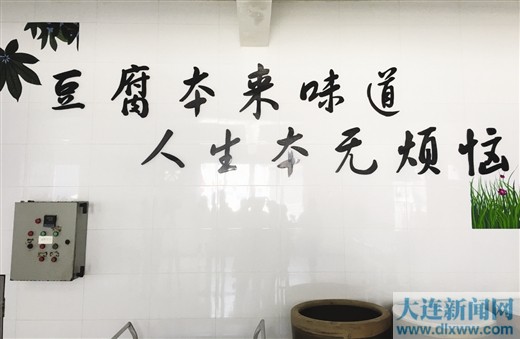 豆腐本来味道
人生本无烦恼
大连新闻网
www.dlxww.com